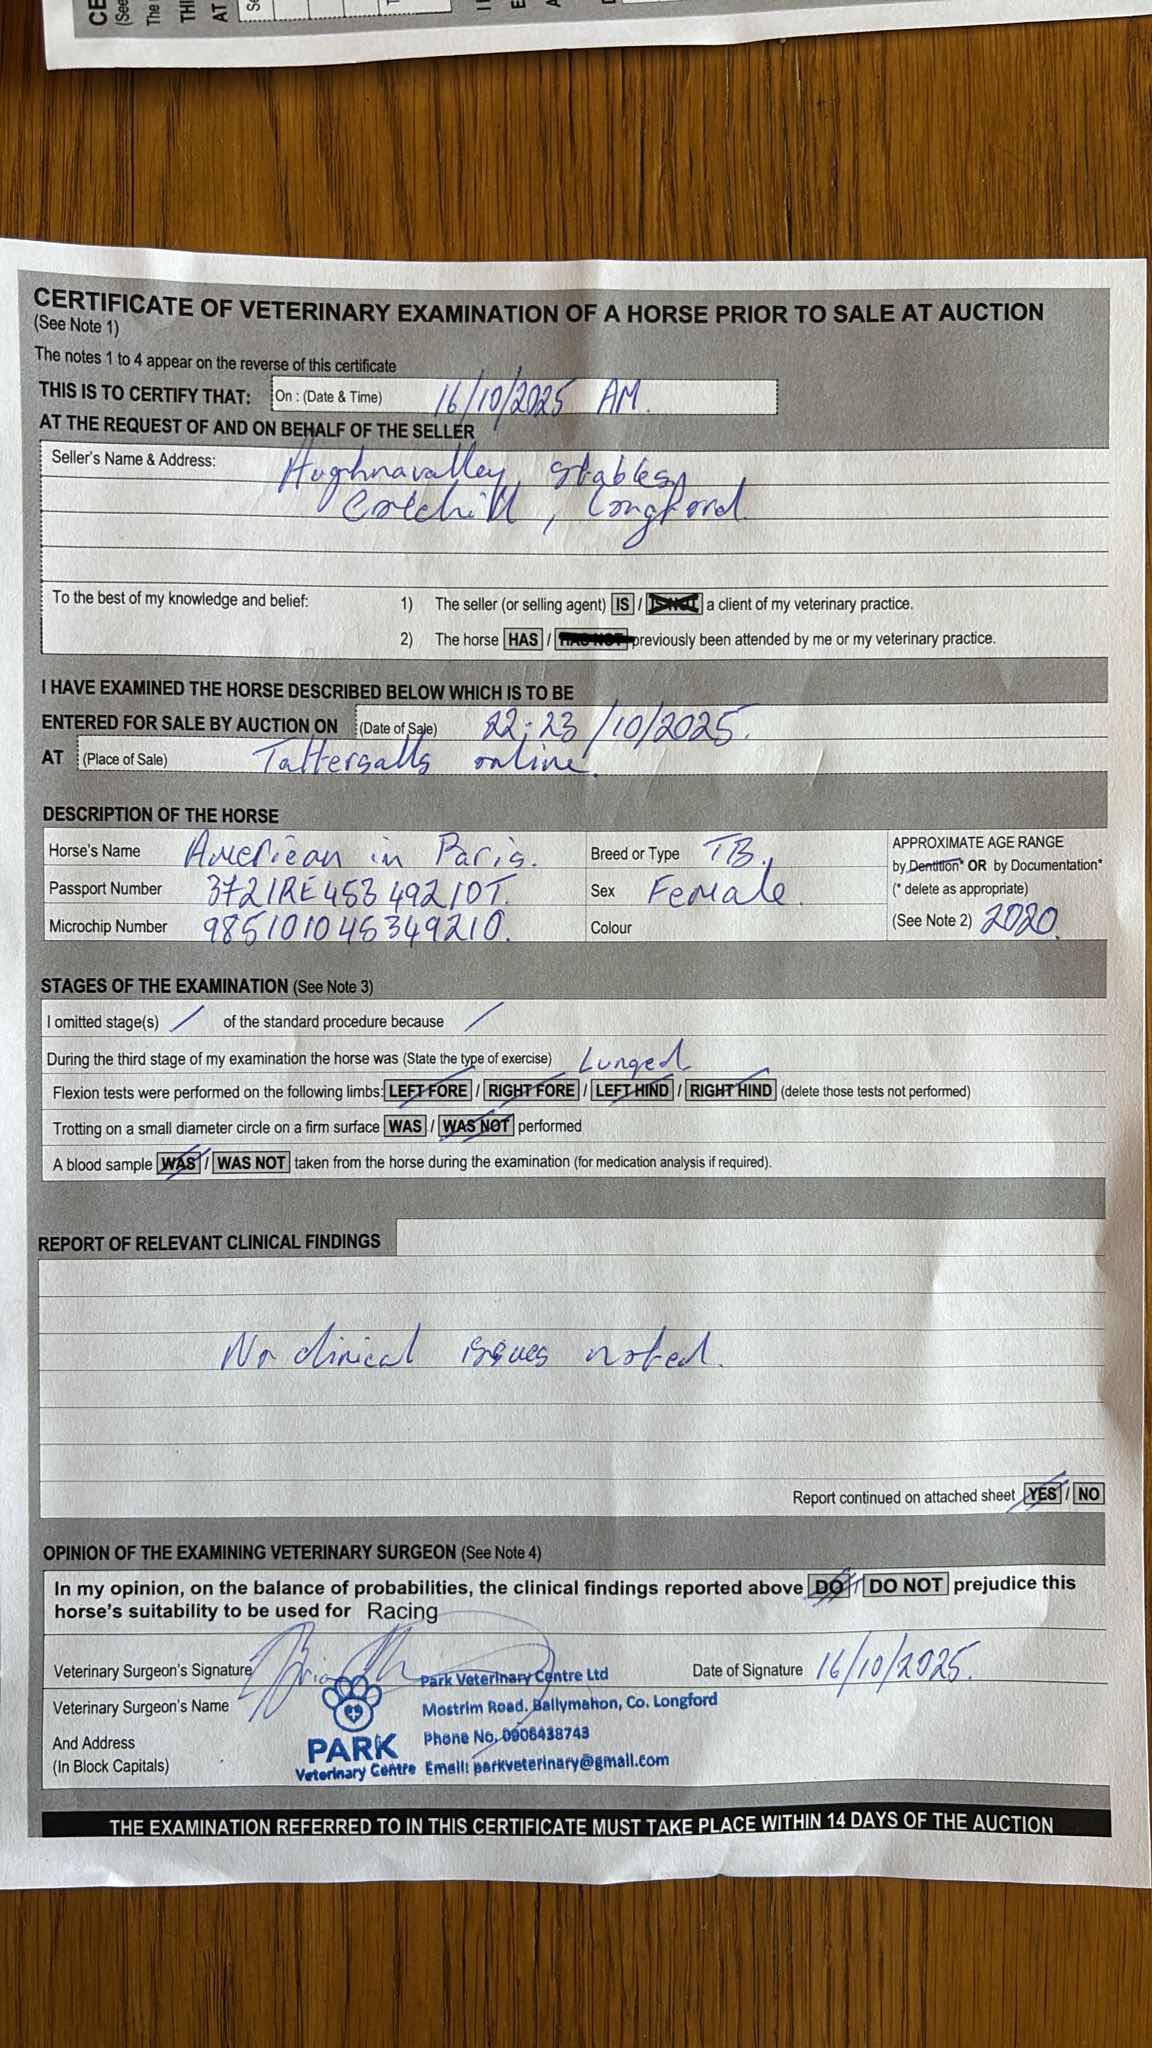 CERTIFICATE OF VETERINARY EXAMINATION OF A HORSE PRIOR TO SALE AT AUCTION
(See Note 1)
The notes 1 to 4 appear on the reverse of this certificate
THIS IS TO CERTIFY THAT: On : (Date & Time) 16/10/2025 AM.
AT THE REQUEST OF AND ON BEHALF OF THE SELLER
Seller's Name & Address: Aughnavalley Stables,
Colehill, Longford.
To the best of my knowledge and belief: 1) The seller (or selling agent) IS / IS NOT a client of my veterinary practice.
2) The horse HAS / HAS NOT previously been attended by me or my veterinary practice.
I HAVE EXAMINED THE HORSE DESCRIBED BELOW WHICH IS TO BE
ENTERED FOR SALE BY AUCTION ON (Date of Sale) 22-23/10/2025.
AT (Place of Sale) Tattersalls online.
DESCRIPTION OF THE HORSE
Horse's Name American in Paris. Breed or Type TB. APPROXIMATE AGE RANGE
by Dentition* OR by Documentation*
Passport Number 372IRE45349210T. Sex Female. (* delete as appropriate)
Microchip Number 985101045349210. Colour (See Note 2) 2020.
STAGES OF THE EXAMINATION (See Note 3)
I omitted stage(s) / of the standard procedure because /
During the third stage of my examination the horse was (State the type of exercise) Lunged
Flexion tests were performed on the following limbs: LEFT FORE / RIGHT FORE / LEFT HIND / RIGHT HIND (delete those tests not performed)
Trotting on a small diameter circle on a firm surface WAS / WAS NOT performed
A blood sample WAS / WAS NOT taken from the horse during the examination (for medication analysis if required).
REPORT OF RELEVANT CLINICAL FINDINGS
No clinical issues noted.
Report continued on attached sheet YES / NO
OPINION OF THE EXAMINING VETERINARY SURGEON (See Note 4)
In my opinion, on the balance of probabilities, the clinical findings reported above DO / DO NOT prejudice this
horse's suitability to be used for Racing
Veterinary Surgeon's Signature Date of Signature 16/10/2025.
Park Veterinary Centre Ltd
Veterinary Surgeon's Name Mostrim Road. Ballymahon, Co. Longford
And Address Phone No. 0906438743
(In Block Capitals) PARK
Veterinary Centre Email: parkveterinary@gmail.com
THE EXAMINATION REFERRED TO IN THIS CERTIFICATE MUST TAKE PLACE WITHIN 14 DAYS OF THE AUCTION